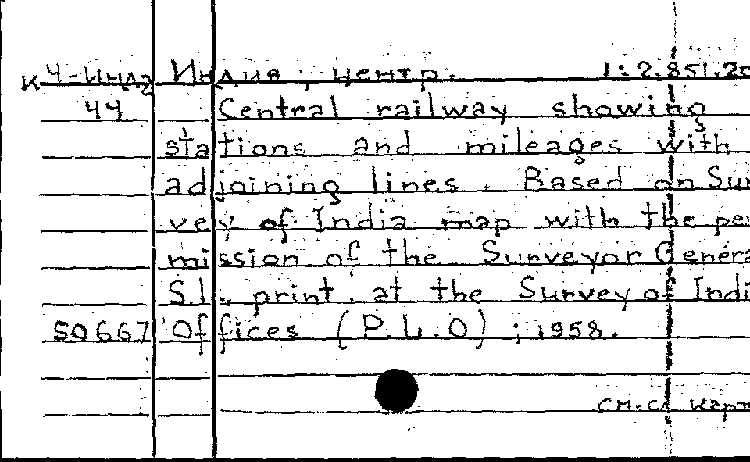 К4-Инд2 Индия, центр. 1:2.851.2
44 Central railway showing
stations and mileages with
adjoining lines. Based on Sur
vey of India map with the per
mission of the Surveyor Genera
S.l., print. at the Survey of Indi
50667 Offices (P.L.O); 1958.
см.сл карт